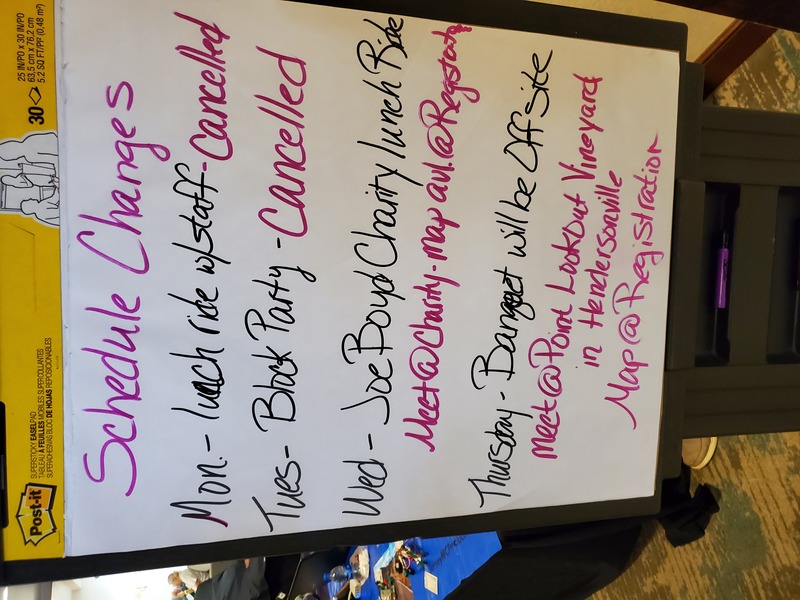 Post-it
SUPERSTICKY EASEL PAD
TABLEAU À FEUILLES MOBILES SUPERCOLLANTES
SUPERADHESIVAS BLOC DE HOJAS REPOSICIONABLES
30
25 IN/PO x 30 IN/PO
63,5 cm x 76,2 cm
5.2 SQ FT/PI² (0,48 m²)
Schedule Changes
Mon. - lunch ride w/staff - Cancelled
Tues - Block Party - Cancelled
Wed - Joe Boyd Charity lunch Ride
Meet @ Charity - Map avl. @ Registration
Thursday - Banquet will be Off Site
Meet @ Point LookOut Vineyard
in Hendersonville
Map @ Registration